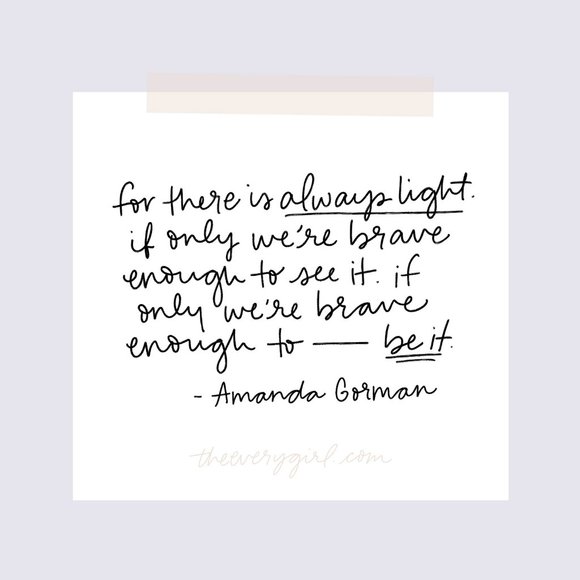 for there is always light.
if only we're brave
enough to see it. if
only we're brave
enough to — be it.
- Amanda Gorman
theeverygirl.com